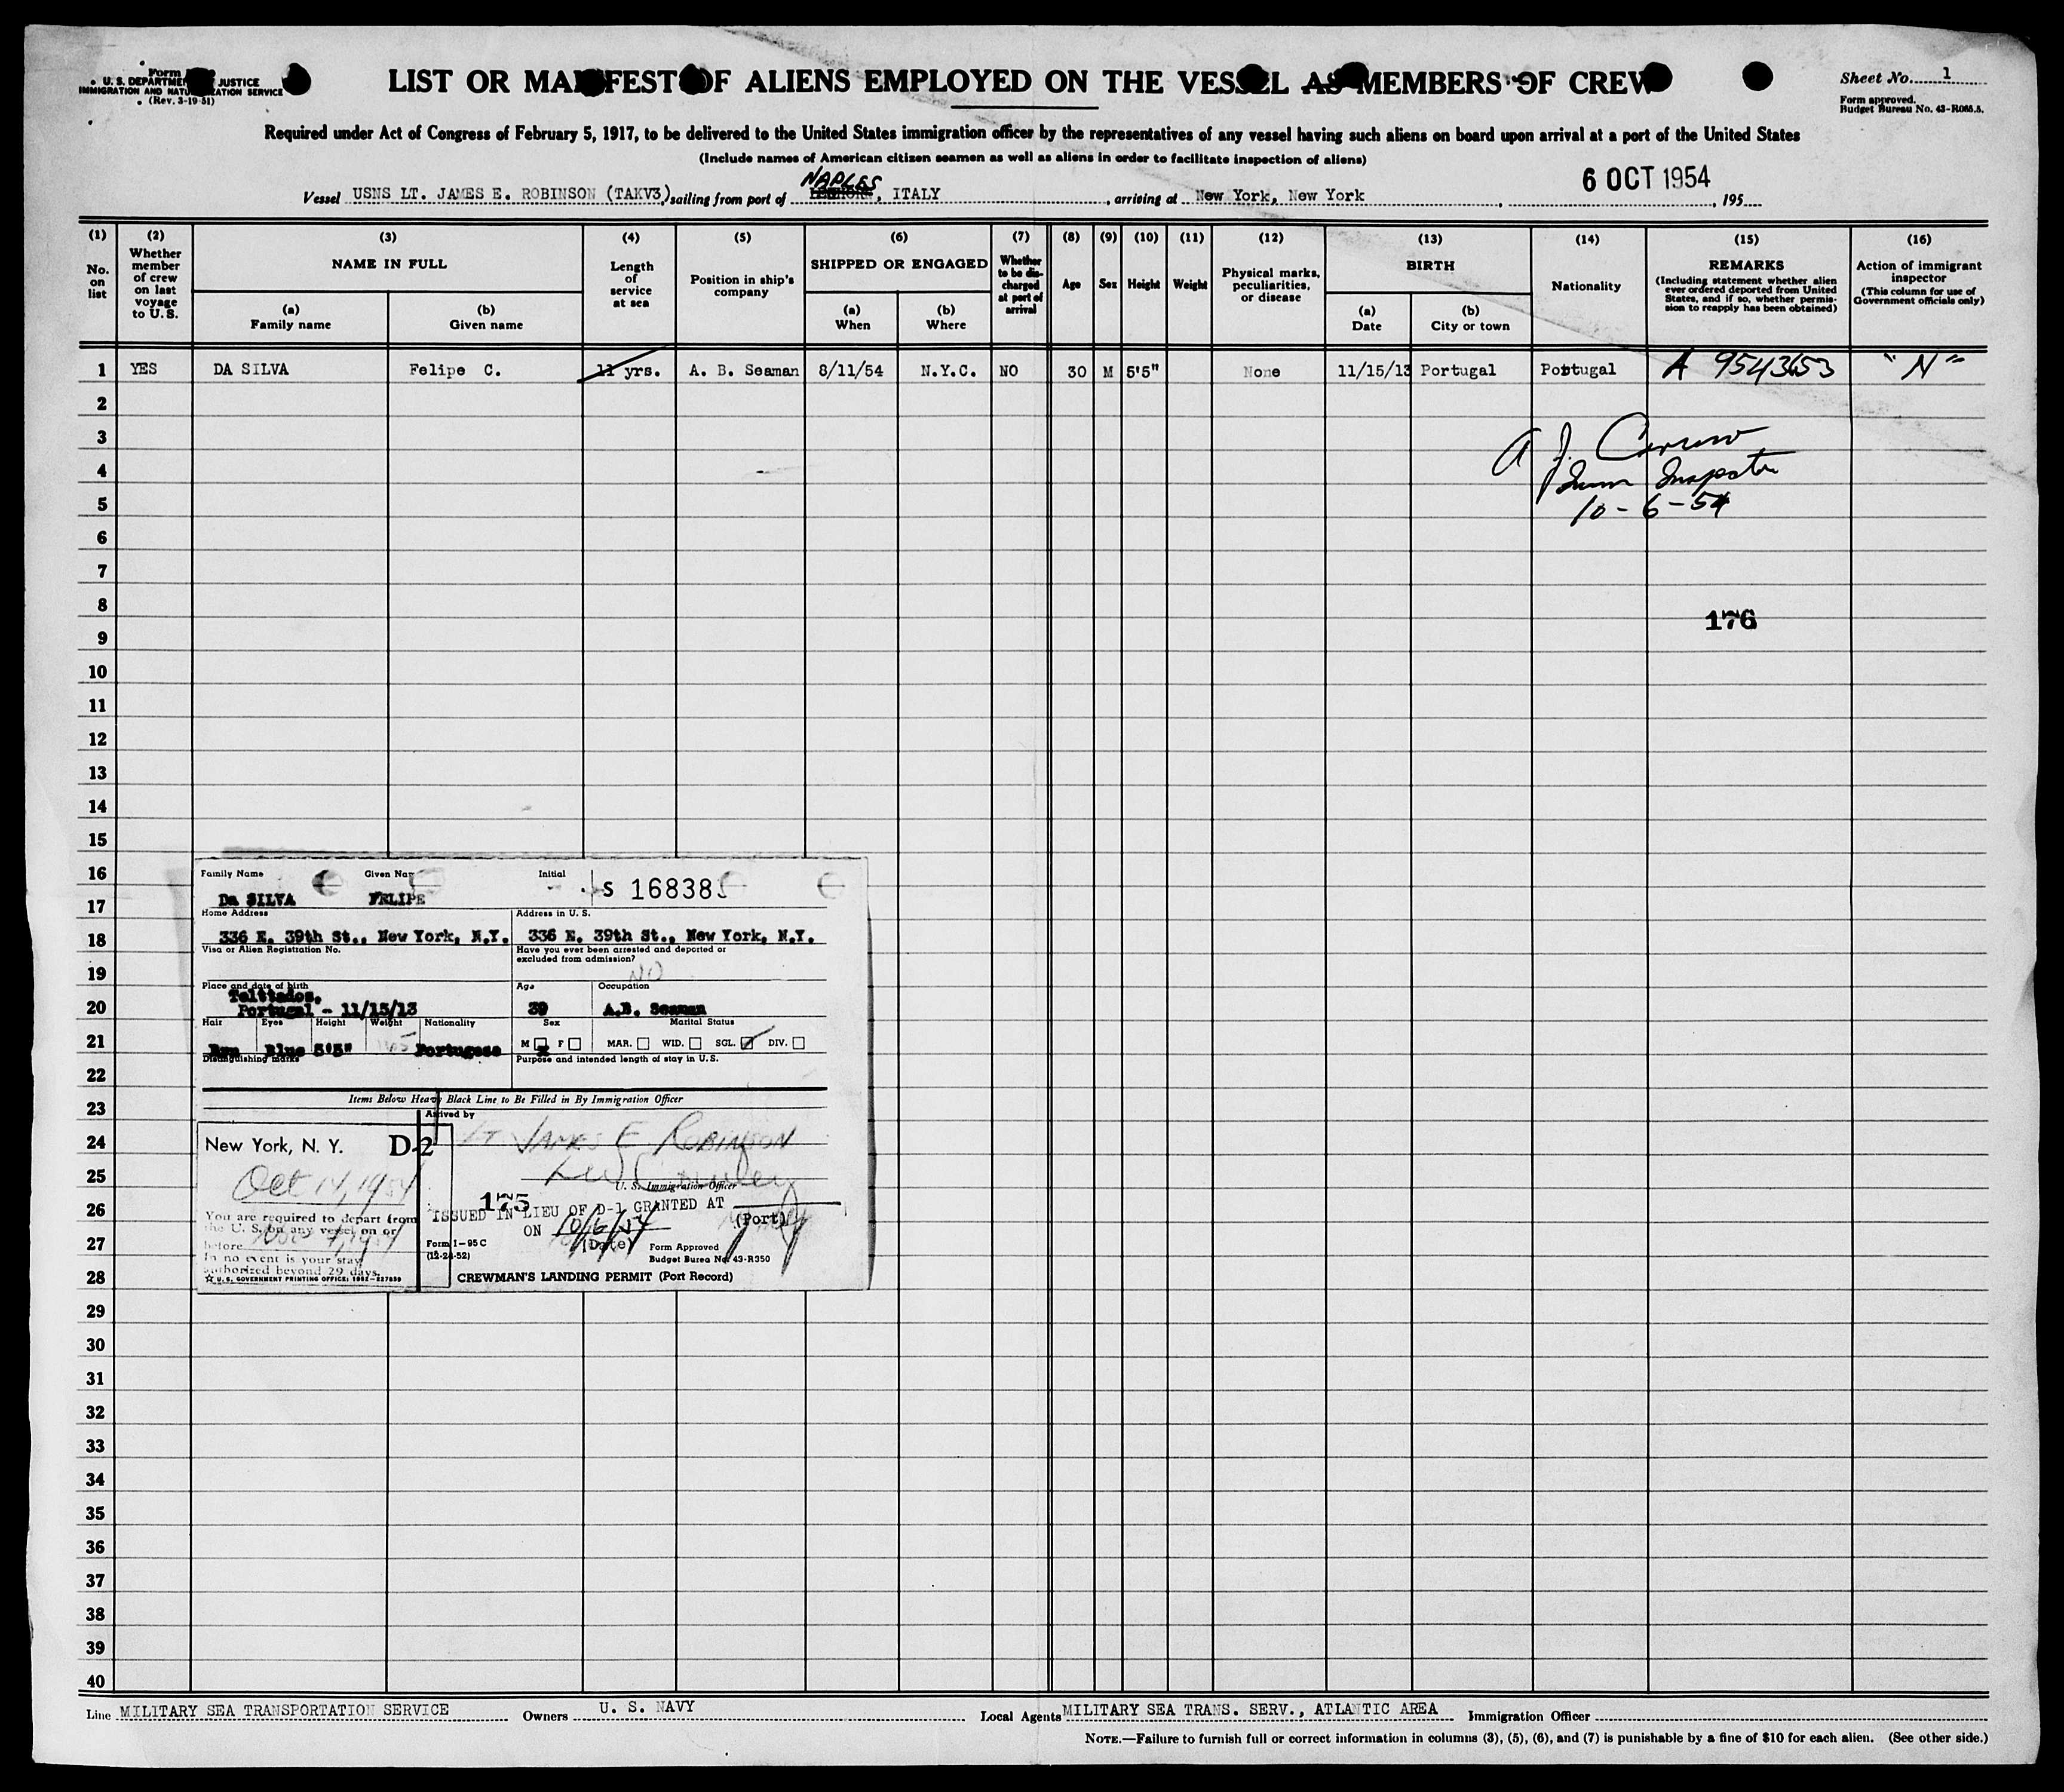 Form
U. S. DEPARTMENT JUSTICE
IMMIGRATION AND NATURALIZATION SERVICE
(Rev. 3-19-51)
LIST OR MANIFEST OF ALIENS EMPLOYED ON THE VESSEL AS MEMBERS OF CREW
Sheet No. 1
Form approved.
Budget Bureau No. 43-R065.5.
Required under Act of Congress of February 5, 1917, to be delivered to the United States immigration officer by the representatives of any vessel having such aliens on board upon arrival at a port of the United States
(Include names of American citizen seamen as well as aliens in order to facilitate inspection of aliens)
NAPLES
6 OCT 1954
Vessel USNS LT. JAMES E. ROBINSON (TAKV3), sailing from port of , ITALY, arriving at New York, New York, 195
(1) No. on list
(2) Whether member of crew on last voyage to U.S.
(3) NAME IN FULL
(a) Family name
(b) Given name
(4) Length of service at sea
(5) Position in ship's company
(6) SHIPPED OR ENGAGED
(a) When
(b) Where
(7) Whether to be discharged at port of arrival
(8) Age
(9) Sex
(10) Height
(11) Weight
(12) Physical marks, peculiarities, or disease
(13) BIRTH
(a) Date
(b) City or town
(14) Nationality
(15) REMARKS
(Including statement whether alien ever ordered deported from United States, and if so, whether permission to reapply has been obtained)
(16) Action of immigrant inspector
(This column for use of Government officials only)
1 YES DA SILVA Felipe C. 11 yrs. A. B. Seaman 8/11/54 N.Y.C. NO 30 M 5'5" None 11/15/13 Portugal Portugal A 9543653 "N"
2
3
A J.
4
Inspector
5
10-6-54
6
7
8
176
9
10
11
12
13
14
15
16
17
18
19
20
21
22
23
24
25
26
27
28
29
30
31
32
33
34
35
36
37
38
39
40
Family Name Given Name Initial S 16838
Da SILVA FELIPE
Home Address Address in U. S.
336 E. 39th St., New York, N.Y. 336 E. 39th St., New York, N.Y.
Visa or Alien Registration No. Have you ever been arrested and deported or
excluded from admission?
NO
Place and date of birth Age Occupation
Portugal - 11/15/13 39 A.B. Seaman
Hair Eyes Height Weight Nationality Sex Marital Status
Blue 5'5" Portugese M F MAR. WID. SGL. DIV.
Distinguishing marks Purpose and intended length of stay in U.S.
Items Below Heavy Black Line to Be Filled in By Immigration Officer
Arrived by
LT JAMES E ROBINSON
New York, N. Y. D-2
Oct 14, 1954
U. S. Immigration Officer
175
You are required to depart from
the U. S. on any vessel on or
before
In no event is your stay
authorized beyond 29 days.
U. S. GOVERNMENT PRINTING OFFICE: 1952-227839
ISSUED IN LIEU OF D-1 GRANTED AT
(Port)
ON 10/6/54
(Date)
Form I-95C
(12-24-52)
Form Approved
Budget Burea No. 43-R350
CREWMAN'S LANDING PERMIT (Port Record)
Line MILITARY SEA TRANSPORTATION SERVICE Owners U. S. NAVY Local Agents MILITARY SEA TRANS. SERV., ATLANTIC AREA Immigration Officer
NOTE.—Failure to furnish full or correct information in columns (3), (5), (6), and (7) is punishable by a fine of $10 for each alien. (See other side.)